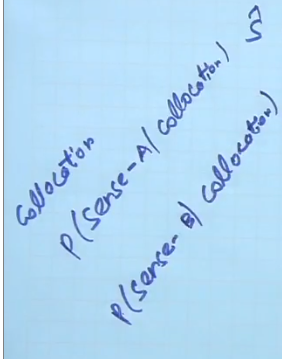 Collocation
P(Sense-A| Collocation)
P(Sense-B| Collocation)